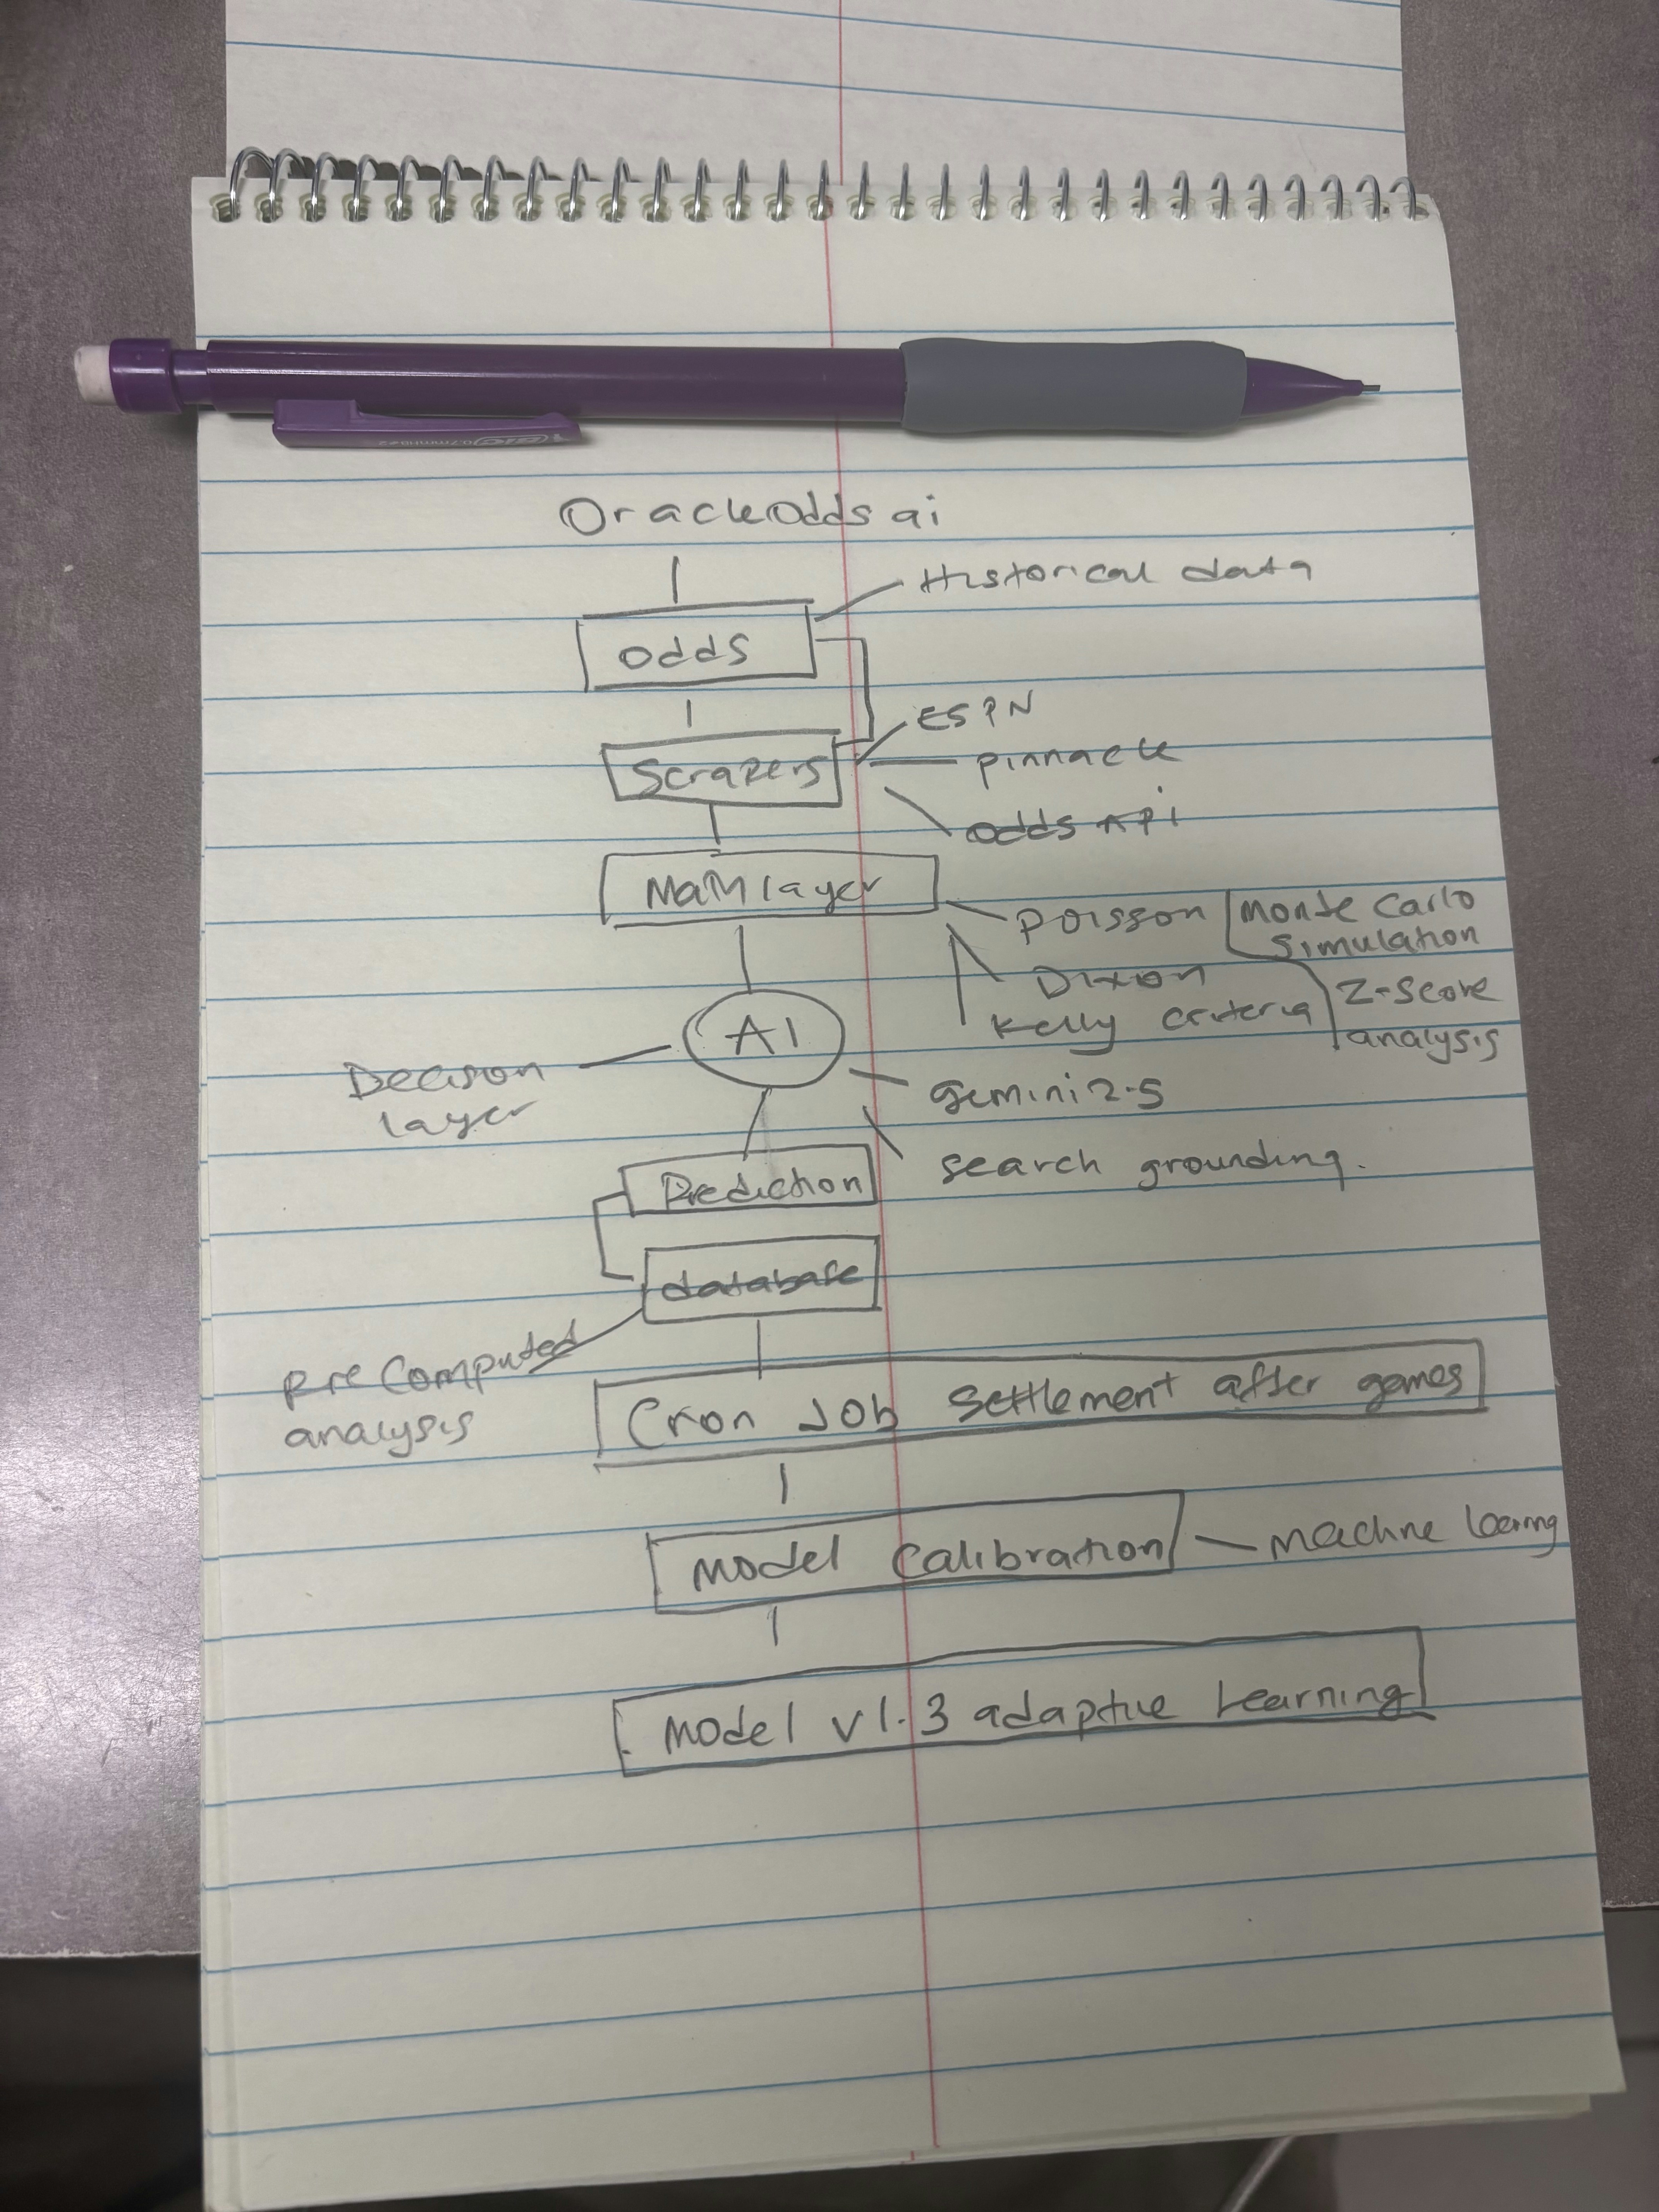 OracleOdds ai
Historical data
odds
ESPN
Scrapers
pinnacle
odds API
Math layer
Poisson
Monte Carlo
Simulation
Dixon
Z-Score
Kelly criteria
analysis
AI
Decison
layer
gemini 2.5
search grounding.
Prediction
database
Pre Computed
analysis
Cron Job Settlement after games
Model Calibration
Machine
Model v1.3 adaptive Learning
BIC